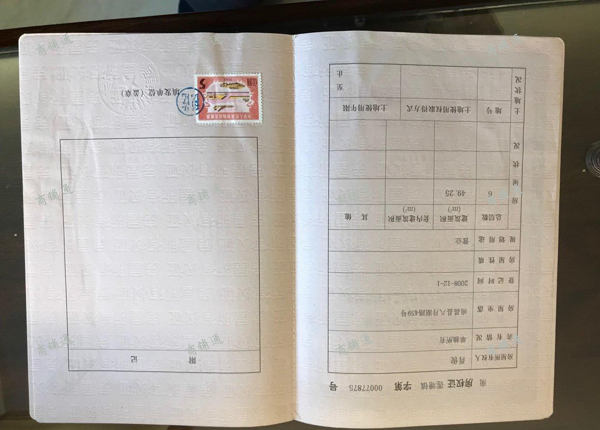 房权证 莲塘镇 字第 00077875 号
房屋所有权人
共有情况 单独所有
房屋坐落
登记时间 2008-12-1
房屋性质
规划用途 营业
房屋状况 总层数 建筑面积(m²) 套内建筑面积(m²) 其他
6 49.25
土地状况 地号 土地使用权取得方式 土地使用年限
至 止
附 记
填发单位（盖章）
商铺通
商铺通
商铺通
商铺通